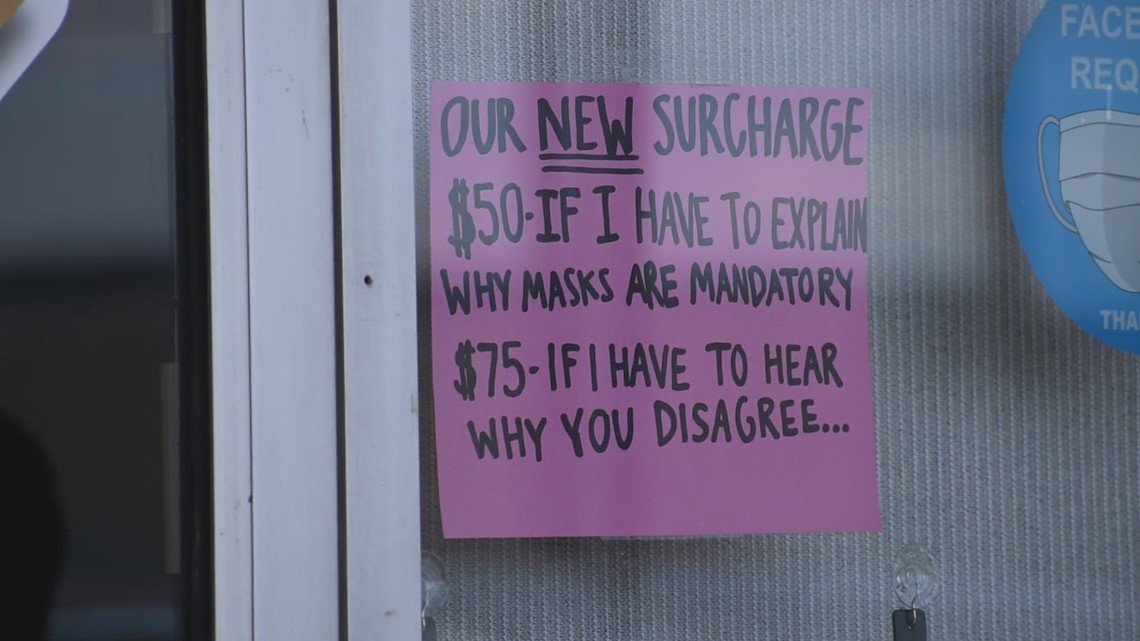 OUR NEW SURCHARGE
$50-IF I HAVE TO EXPLAIN
WHY MASKS ARE MANDATORY
$75-IF I HAVE TO HEAR
WHY YOU DISAGREE...
FACE